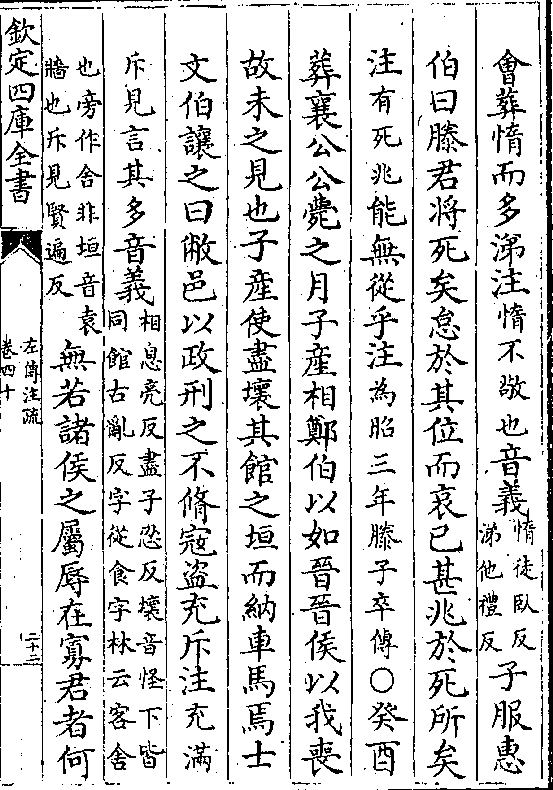 會葬惰而多涕注惰不敬也音義惰徒臥反涕他禮反子服惠
伯曰滕君將死矣怠於其位而哀已甚兆於死所矣
注有死兆能無從乎注為昭三年滕子卒傳○癸酉
葬襄公公薨之月子產相鄭伯以如晉晉侯以我喪
故未之見也子產使盡壞其館之垣而納車馬焉士
文伯讓之曰敝邑以政刑之不脩寇盜充斥注充滿
斥見言其多音義相息亮反盡子忍反壞音怪下皆同館古亂反字從食字林云客舍
也旁作舍非垣音袁牆也斥見賢遍反無若諸侯之屬辱在寡君者何
欽定四庫全書
左傳注疏
卷四十
二十二